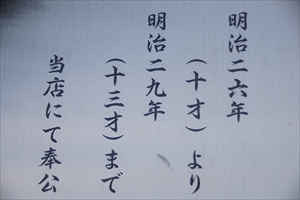 明治二六年
(十才)より
明治二九年
(十三才)まで
当店にて奉公